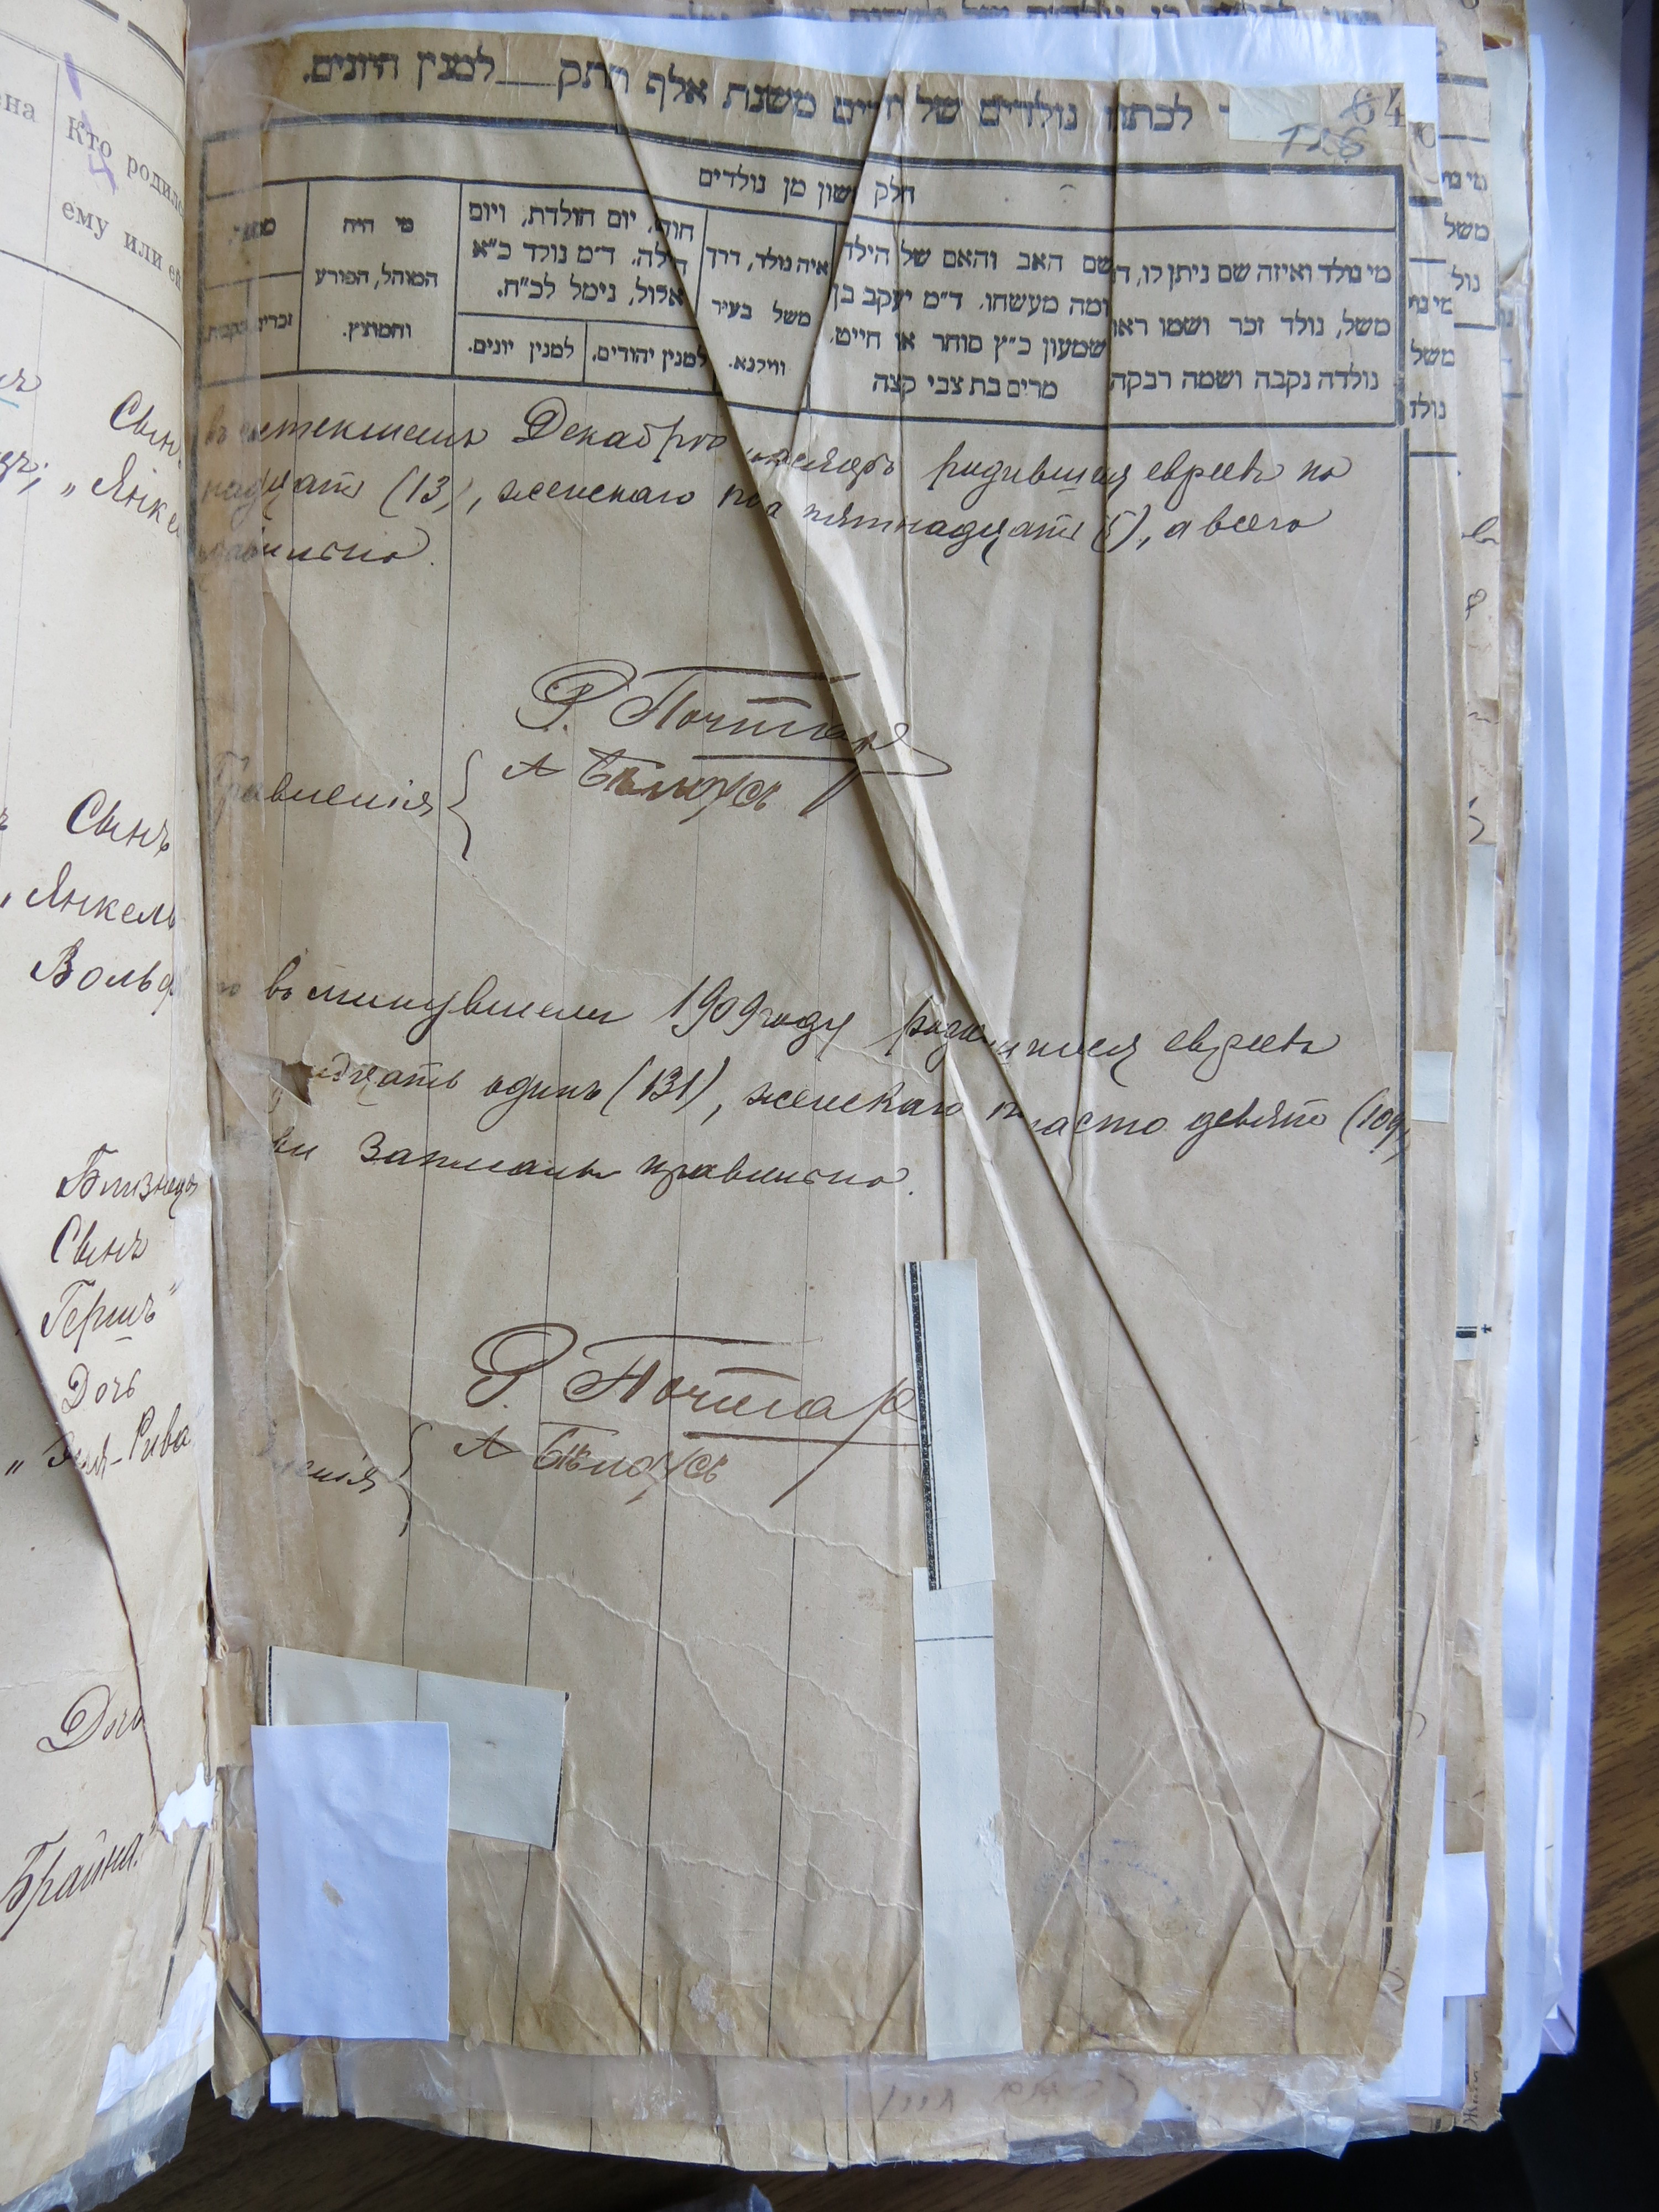 ена
Кто родился
ему или ей
Сынъ
„Янкель
Сынъ
„Янкель
Вольф
Близнецы
Сынъ
„Гершъ"
Дочь
Рива
Дочь
Брайна"
64
לכתוב נולדים של יהודים משנת אלף תתק למנין היונים.
חלק ראשון מן נולדים
מי נולד ואיזה שם ניתן לו, ד"מ
משל, נולד זכר ושמו ראובן
נולדה נקבה ושמה רבקה
שם האב והאם של הילד
ומה מעשהו. ד"מ יעקב בן
שמעון כ"ץ סוחר או חייט.
מרים בת צבי קצה
איה נולד, דרך
משל בעיר
ווילנא.
חודש, יום הולדת, ויום
המילה. ד"מ נולד כ"א
אלול, נימל לכ"ח.
למנין יהודים.
למנין יונים.
מי היה
המוהל, הפורע
והמוצץ.
זכרים
въ истекшемъ Декабрѣ мѣсяцѣ родившихся евреевъ по
надцать (13), женскаго пола пятнадцать (15), а всего
равильно.
Р. Почтаръ
Правленія { А Бѣлоусъ
въ минувшемъ 1909 году родившихся евреевъ
идцать одинъ (131), женскаго пола сто девять (109)
записаны правильно.
Р. Почтаръ
енія { А Бѣлоусъ
מי נו
משל
נול
מי נו
משל
נולד